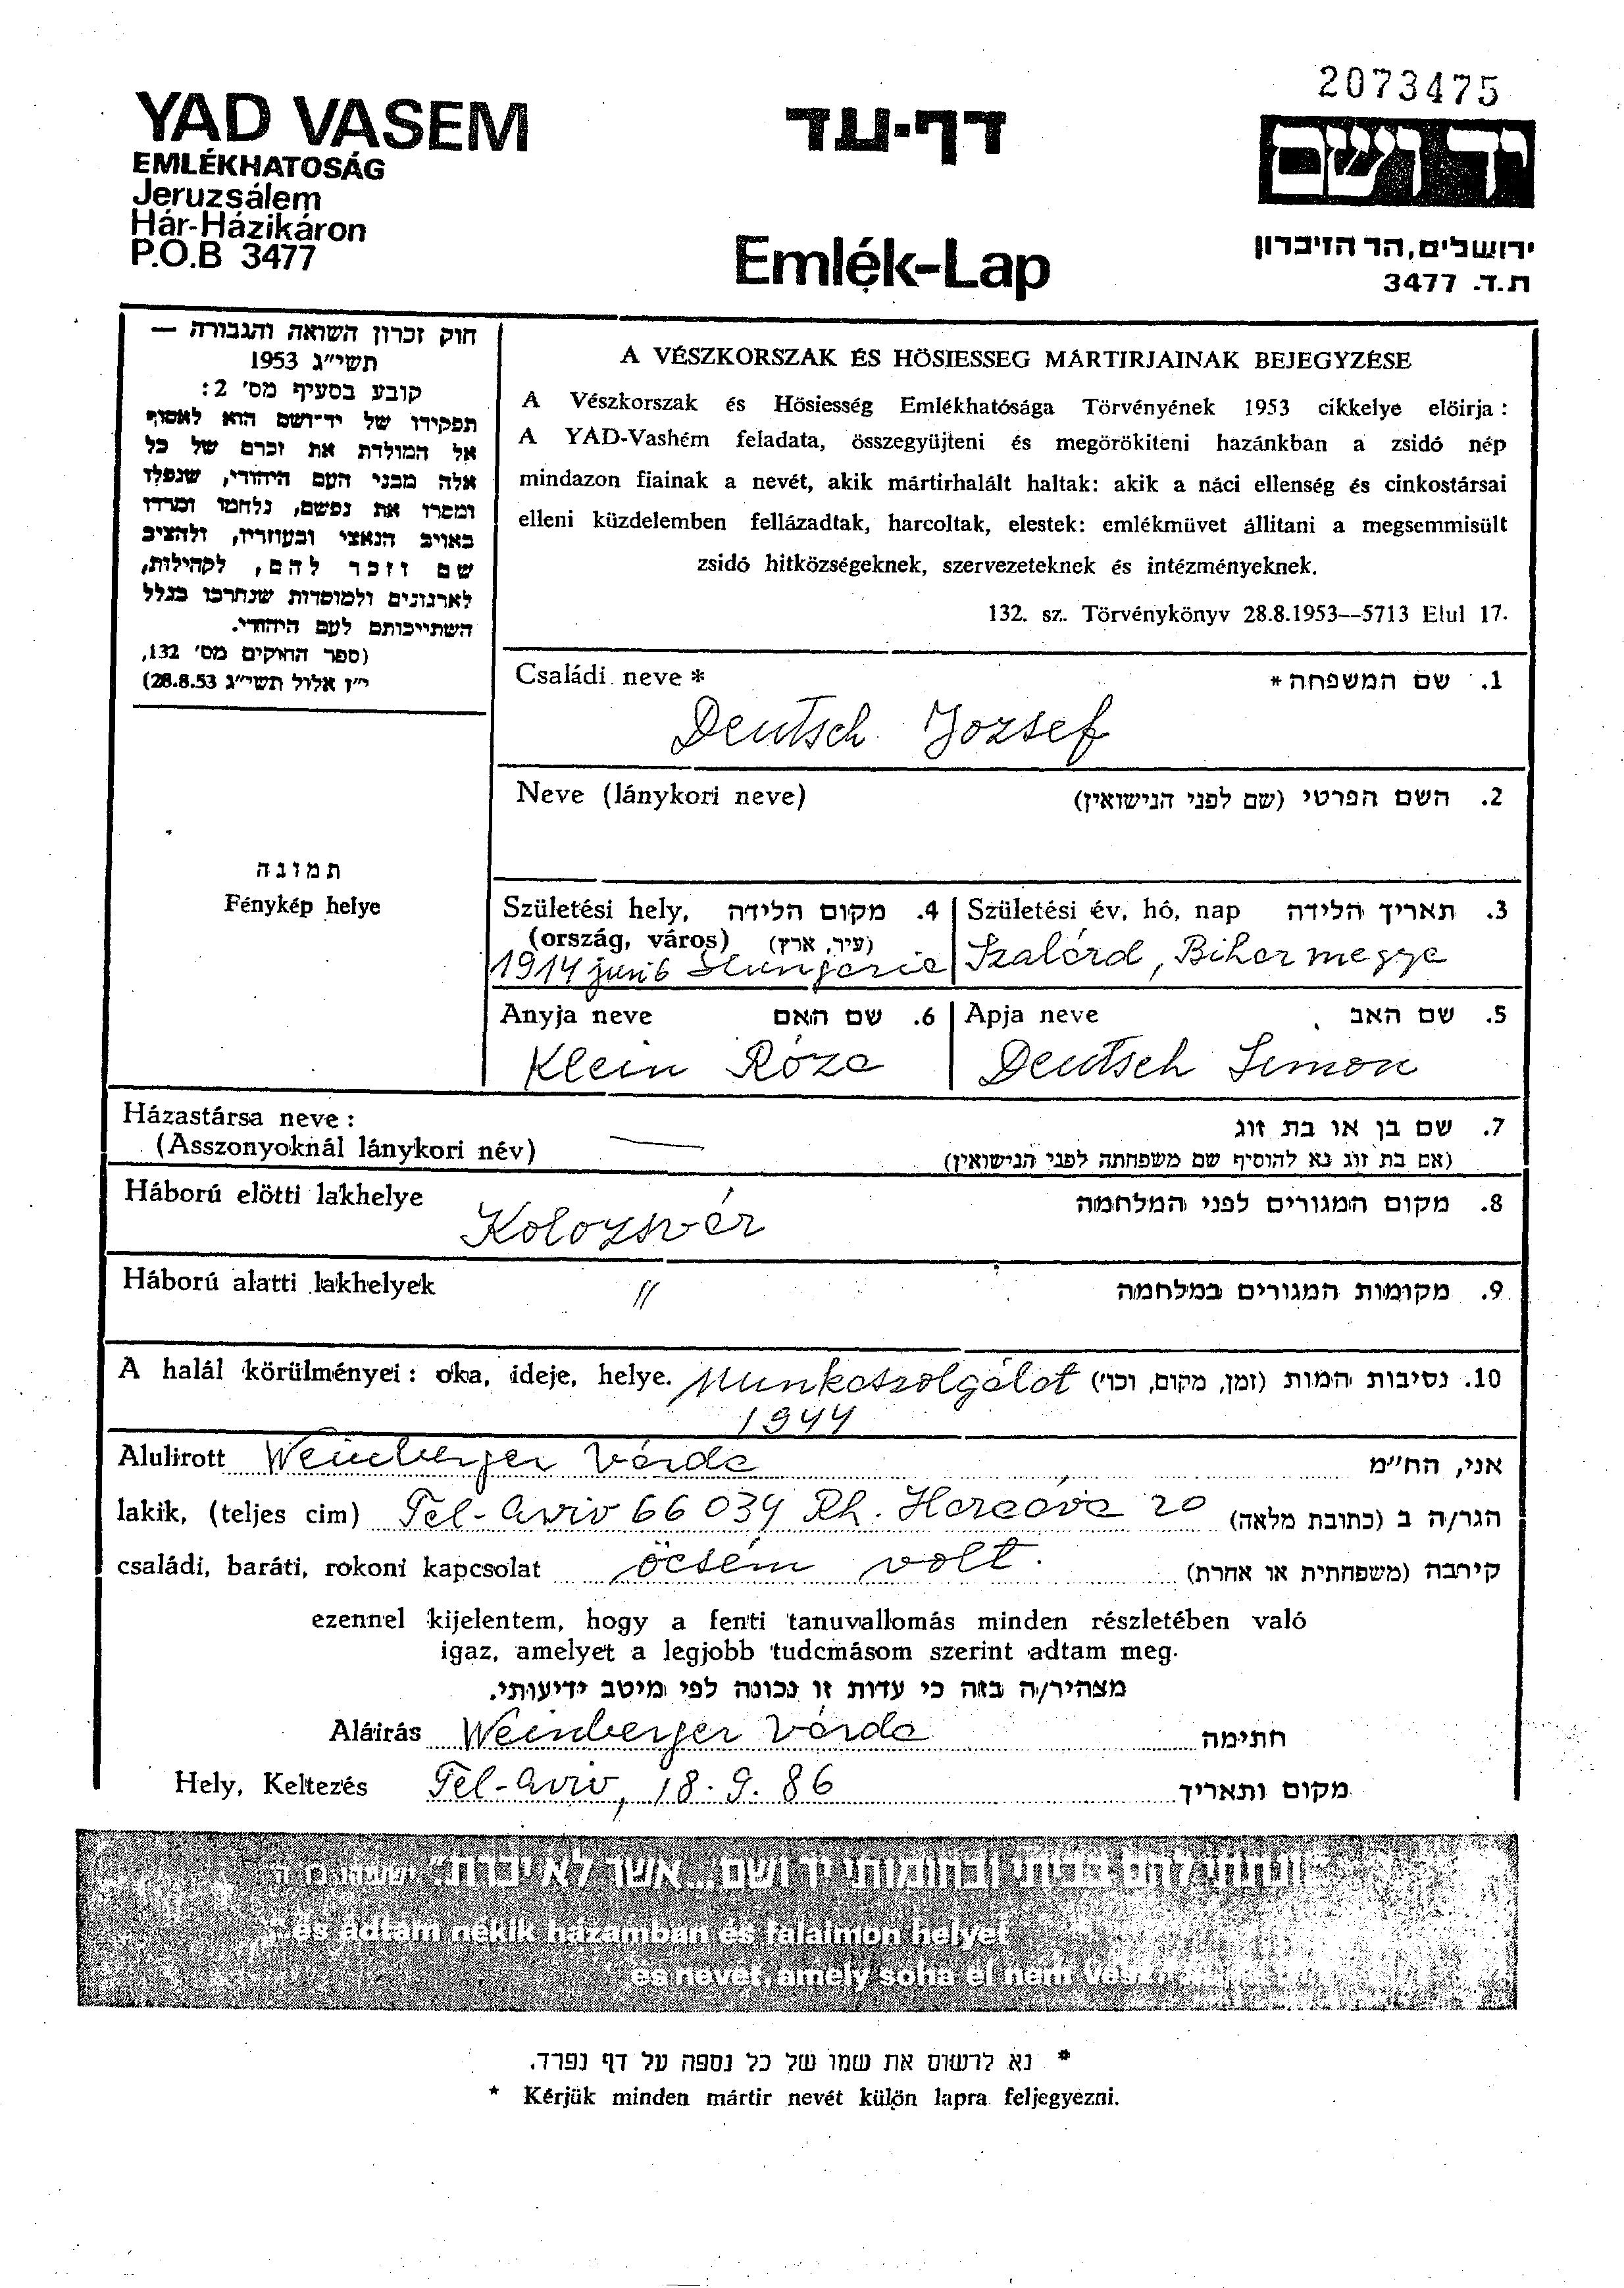 2073475
YAD VASEM
EMLÉKHATOSÁG
Jeruzsálem
Hár-Házikáron
P.O.B 3477
דף-עד
Emlék-Lap
יד ושם
ירושלים, הר הזיכרון
ת.ד. 3477
חוק זכרון השואה והגבורה —
תשי"ג 1953
קובע בסעיף מס' 2:
תפקידו של יד-ושם הוא לאסוף
אל המולדת את זכרם של כל
אלה מבני העם היהודי, שנפלו
ומסרו את נפשם, נלחמו ומרדו
באויב הנאצי ובעוזריו, ולהציב
שם וזכר להם, לקהילות,
לארגונים ולמוסדות שנחרבו בגלל
השתייכותם לעם היהודי.
(ספר החוקים מס' 132,
י"ז אלול תשי"ג 28.8.53)
A VÉSZKORSZAK ÉS HÖSIESSEG MÁRTIRJAINAK BEJEGYZÉSE
A Vészkorszak és Hösiesség Emlékhatósága Törvényének 1953 cikkelye elöirja :
A YAD-Vashém feladata, összegyüjteni és megörökiteni hazánkban a zsidó nép
mindazon fiainak a nevét, akik mártirhalált haltak: akik a náci ellenség és cinkostársai
elleni küzdelemben fellázadtak, harcoltak, elestek: emlékmüvet állitani a megsemmisült
zsidó hitközségeknek, szervezeteknek és intézményeknek.
132. sz. Törvénykönyv 28.8.1953—5713 Elul 17.
Családi neve * 1. שם המשפחה*
Deutsch Jozsef
Neve (lánykori neve) 2. השם הפרטי (שם לפני הנישואין)
תמונה
Fénykép helye
Születési hely, 4. מקום הלידה
(ország, város) (עיר, ארץ)
1914 juni 6 Hungaria
Születési év, hó, nap 3. תאריך הלידה
Szalárd, Bihar megye
Anyja neve 6. שם האם
Klein Róza
Apja neve 5. שם האב
Deutsch Simon
Házastársa neve : 7. שם בן או בת זוג
(Asszonyoknál lánykori név) — (אם בת זוג נא להוסיף שם משפחתה לפני הנישואין)
Háború elötti lakhelye 8. מקום המגורים לפני המלחמה
Kolozsvár
Háború alatti lakhelyek " 9. מקומות המגורים במלחמה
A halál körülményei : oka, ideje, helye. Munkaszolgálat 10. נסיבות המות (זמן, מקום, וכו')
1944
Alulirott Weinberger Várda אני, הח"מ
lakik, (teljes cim) Tel-Aviv 66034 Rh. Haraáva 20 הגר/ה ב (כתובת מלאה)
családi, baráti, rokoni kapcsolat öcsém volt. קירבה (משפחתית או אחרת)
ezennel kijelentem, hogy a fenti tanuvallomás minden részletében való
igaz, amelyet a legjobb tudcmásom szerint adtam meg.
מצהיר/ה בזה כי עדות זו נכונה לפי מיטב ידיעותי.
Aláirás Weinberger Várda חתימה
Hely, Keltezés Tel-Aviv, 18.9.86 מקום ותאריך
"ונתתי להם בביתי ובחומותי יד ושם...אשר לא יכרת" ישעיהו נו ה
"és adtam nékik házamban és falaimon helyet
és nevet, amely soha el nem vész"
* נא לרשום את שמו של כל נספה על דף נפרד.
* Kérjük minden mártir nevét külön lapra feljegyezni.